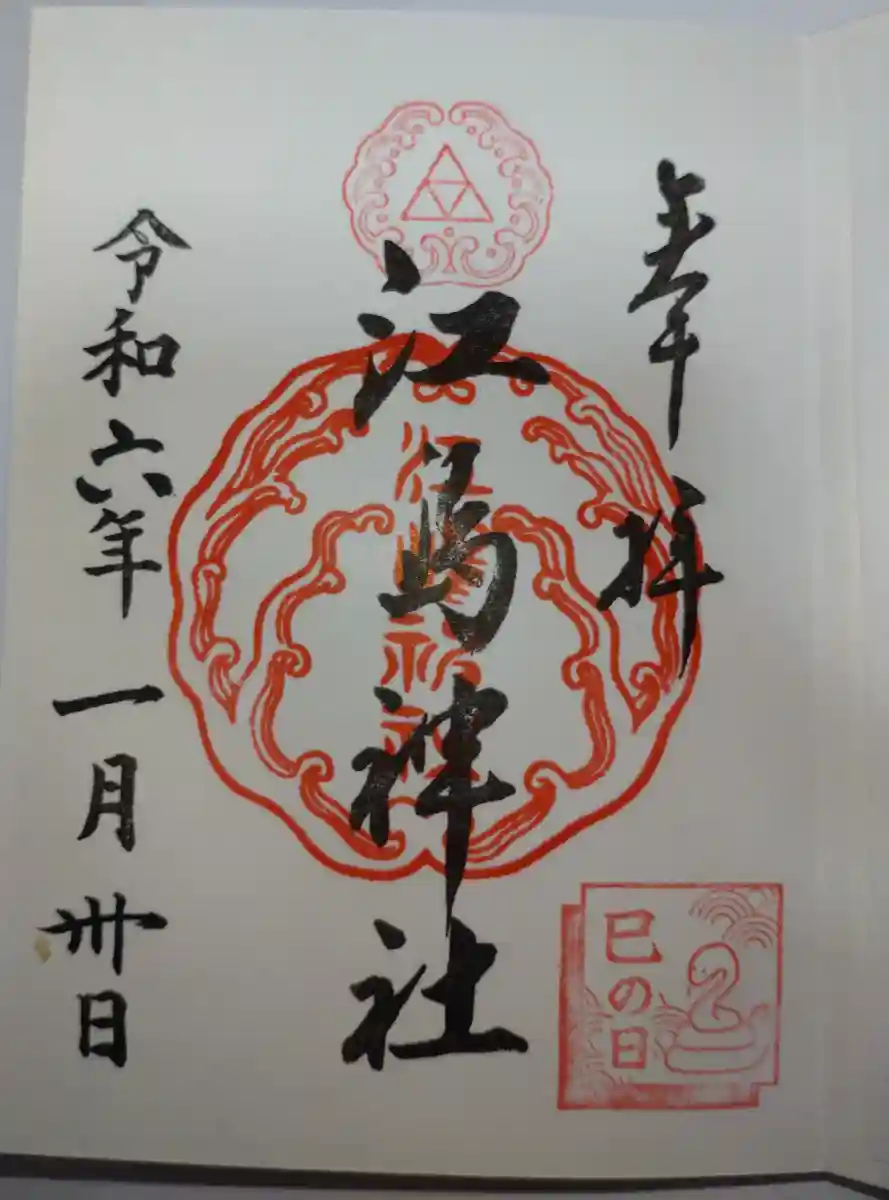 奉拝
江島神社
江島神社
巳の日
令和六年一月卅日